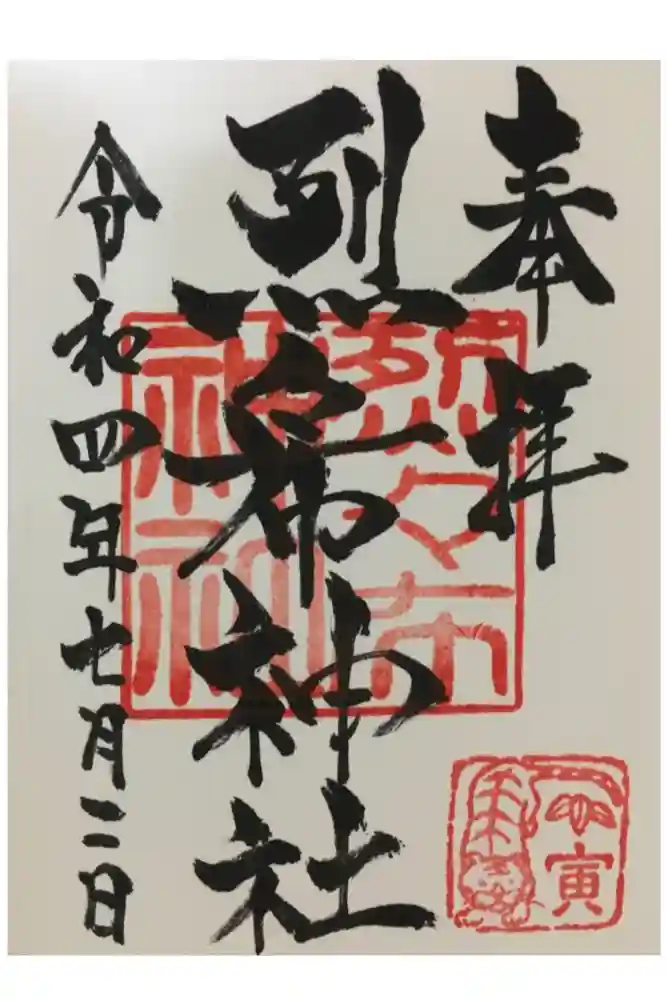 奉拝
烈々布神社
令和四年七月二日
烈々布
神社
寅